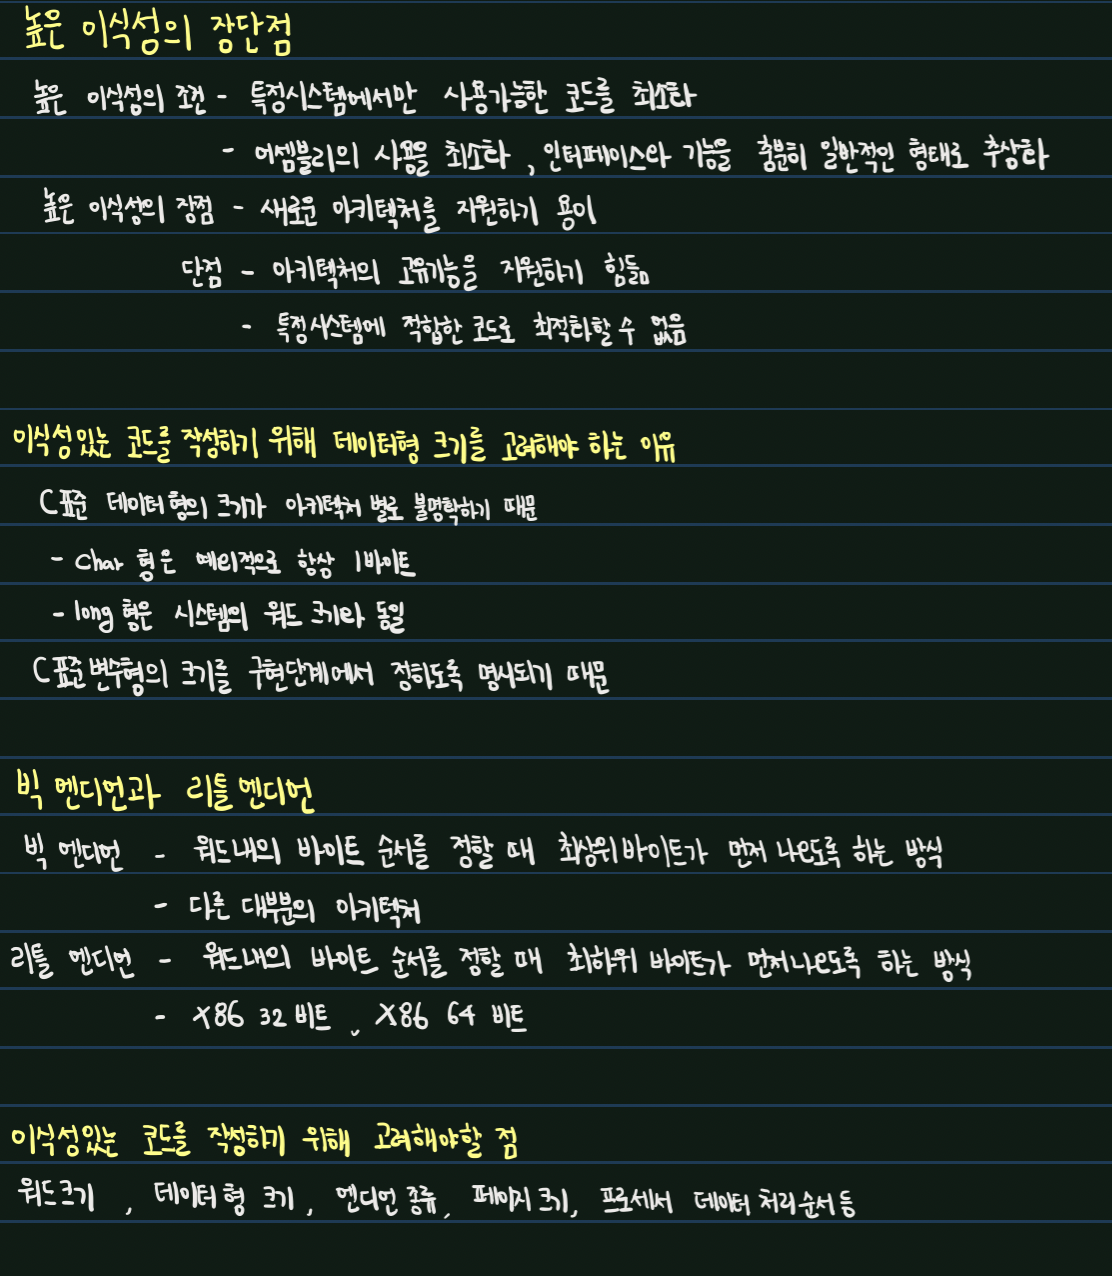 높은 이식성의 장단점
높은 이식성의 조건 - 특정시스템에서만 사용가능한 코드를 최소화
- 어셈블리의 사용을 최소화, 인터페이스와 기능을 충분히 일반적인 형태로 추상화
높은 이식성의 장점 - 새로운 아키텍처를 지원하기 용이
단점 - 아키텍처의 고유기능을 지원하기 힘듦
- 특정시스템에 적합한 코드로 최적화할 수 없음
이식성있는 코드를 작성하기 위해 데이터형 크기를 고려해야 하는 이유
C 표준 데이터형의 크기가 아키텍처 별로 불명확하기 때문
- Char 형은 예외적으로 항상 1바이트
- long 형은 시스템의 워드 크기와 동일
C 표준변수형의 크기를 구현단계에서 정하도록 명시되기 때문
빅 엔디언과 리틀엔디언
빅 엔디언 - 워드내의 바이트 순서를 정할 때 최상위바이트가 먼저 나오도록 하는 방식
- 다른 대부분의 아키텍처
리틀 엔디언 - 워드내의 바이트 순서를 정할 때 최하위 바이트가 먼저나오도록 하는 방식
- X86 32비트, X86 64 비트
이식성있는 코드를 작성하기 위해 고려해야할 점
워드크기, 데이터형 크기, 엔디언 종류, 페이지크기, 프로세서 데이터 처리순서 등